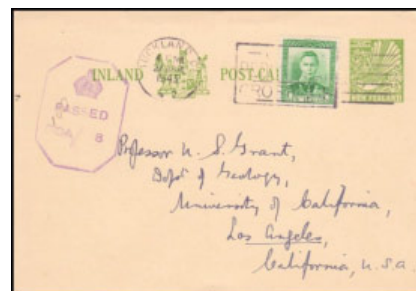 AUCKLAND
INLAND POST CARD
PASSED
8
NEW ZEALAND
Professor U. S. Grant,
Dept of Geology,
University of California,
Los Angeles,
California, U.S.A.